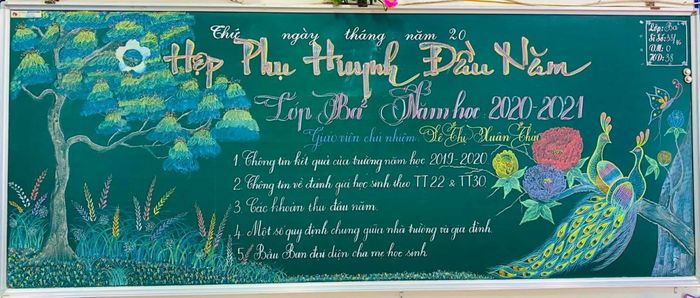 Thứ ngày tháng năm 20
Họp Phụ Huynh Đầu Năm
Lớp Ba³ Năm học: 2020-2021
Giáo viên chủ nhiệm: Lê Thị Xuân Thảo
1. Thông tin kết quả của trường năm học 2019-2020
2. Thông tin về đánh giá học sinh theo TT22 & TT30
3. Các khoản thu đầu năm.
4. Một số quy định chung giữa nhà trường và gia đình.
5. Bầu Ban đại diện cha mẹ học sinh.
Lớp: Ba³
Sĩ Số: 38/16
V.M: 0
H.D: 38